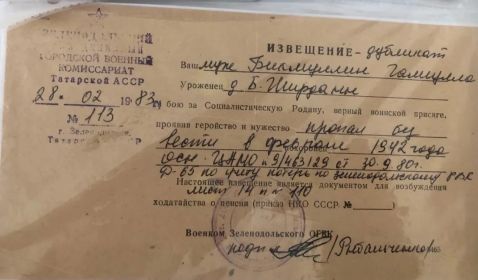 ЗЕЛЕНОДОЛЬСКИЙ
ГОРОДСКОЙ ВОЕННЫЙ
КОМИССАРИАТ
Татарской АССР
28-02 1983 г.
№ 113
г. Зеленодольск
Татарской АССР
ИЗВЕЩЕНИЕ - дубликат
Ваш муж Бикмуллин Гамирулла
Уроженец д. Б. Ширданы
в бою за Социалистическую Родину, верный воинской присяге,
проявив геройство и мужество пропал без
вести в феврале 1942 года
похоронен
осн: ЦАМО № 9/463129 от 30.9.80г.
Ф-65 по учету потерь по Зеленодольскому РВК
Настоящее извещение является документом для возбуждения
лист 14 п-п 110
ходатайства о пенсии (приказ НКО СССР №
Военком Зеленодольского ОГВК